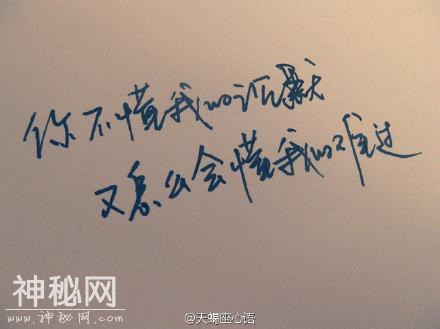 你不懂我的沉默
又怎么会懂我的难过
神秘网
www.神秘网.com
@天蝎座心语